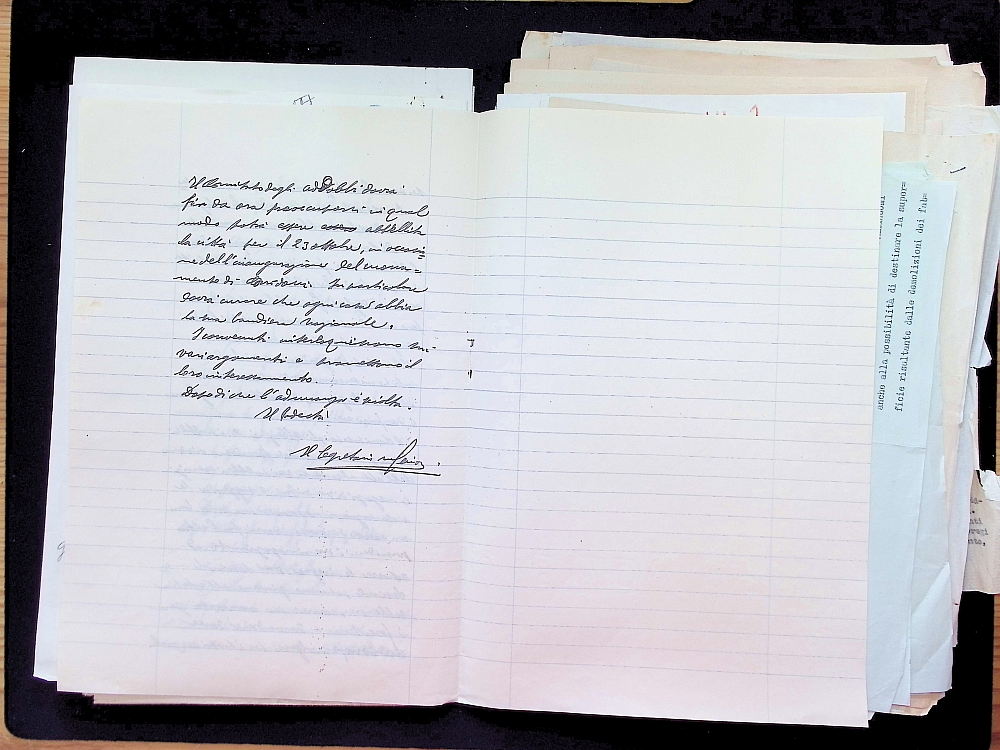 Il Comitato degli addobbi dovrà
fin da ora preoccuparsi in qual
modo potrà essere abbellita
la città per il 23 ottobre, in occasio=
ne dell'inaugurazione del monu=
mento di In particolare
dovrà curare che ogni casa abbia
la sua bandiera nazionale.
I convenuti interloquiscono su
vari argomenti e promettono il
loro interessamento.
Dopo di che l'adunanza è sciolta.
Il Podestà
Il Segretario
anche alla possibilità di destinare la super=
ficie risultante dalle demolizioni dei fab=